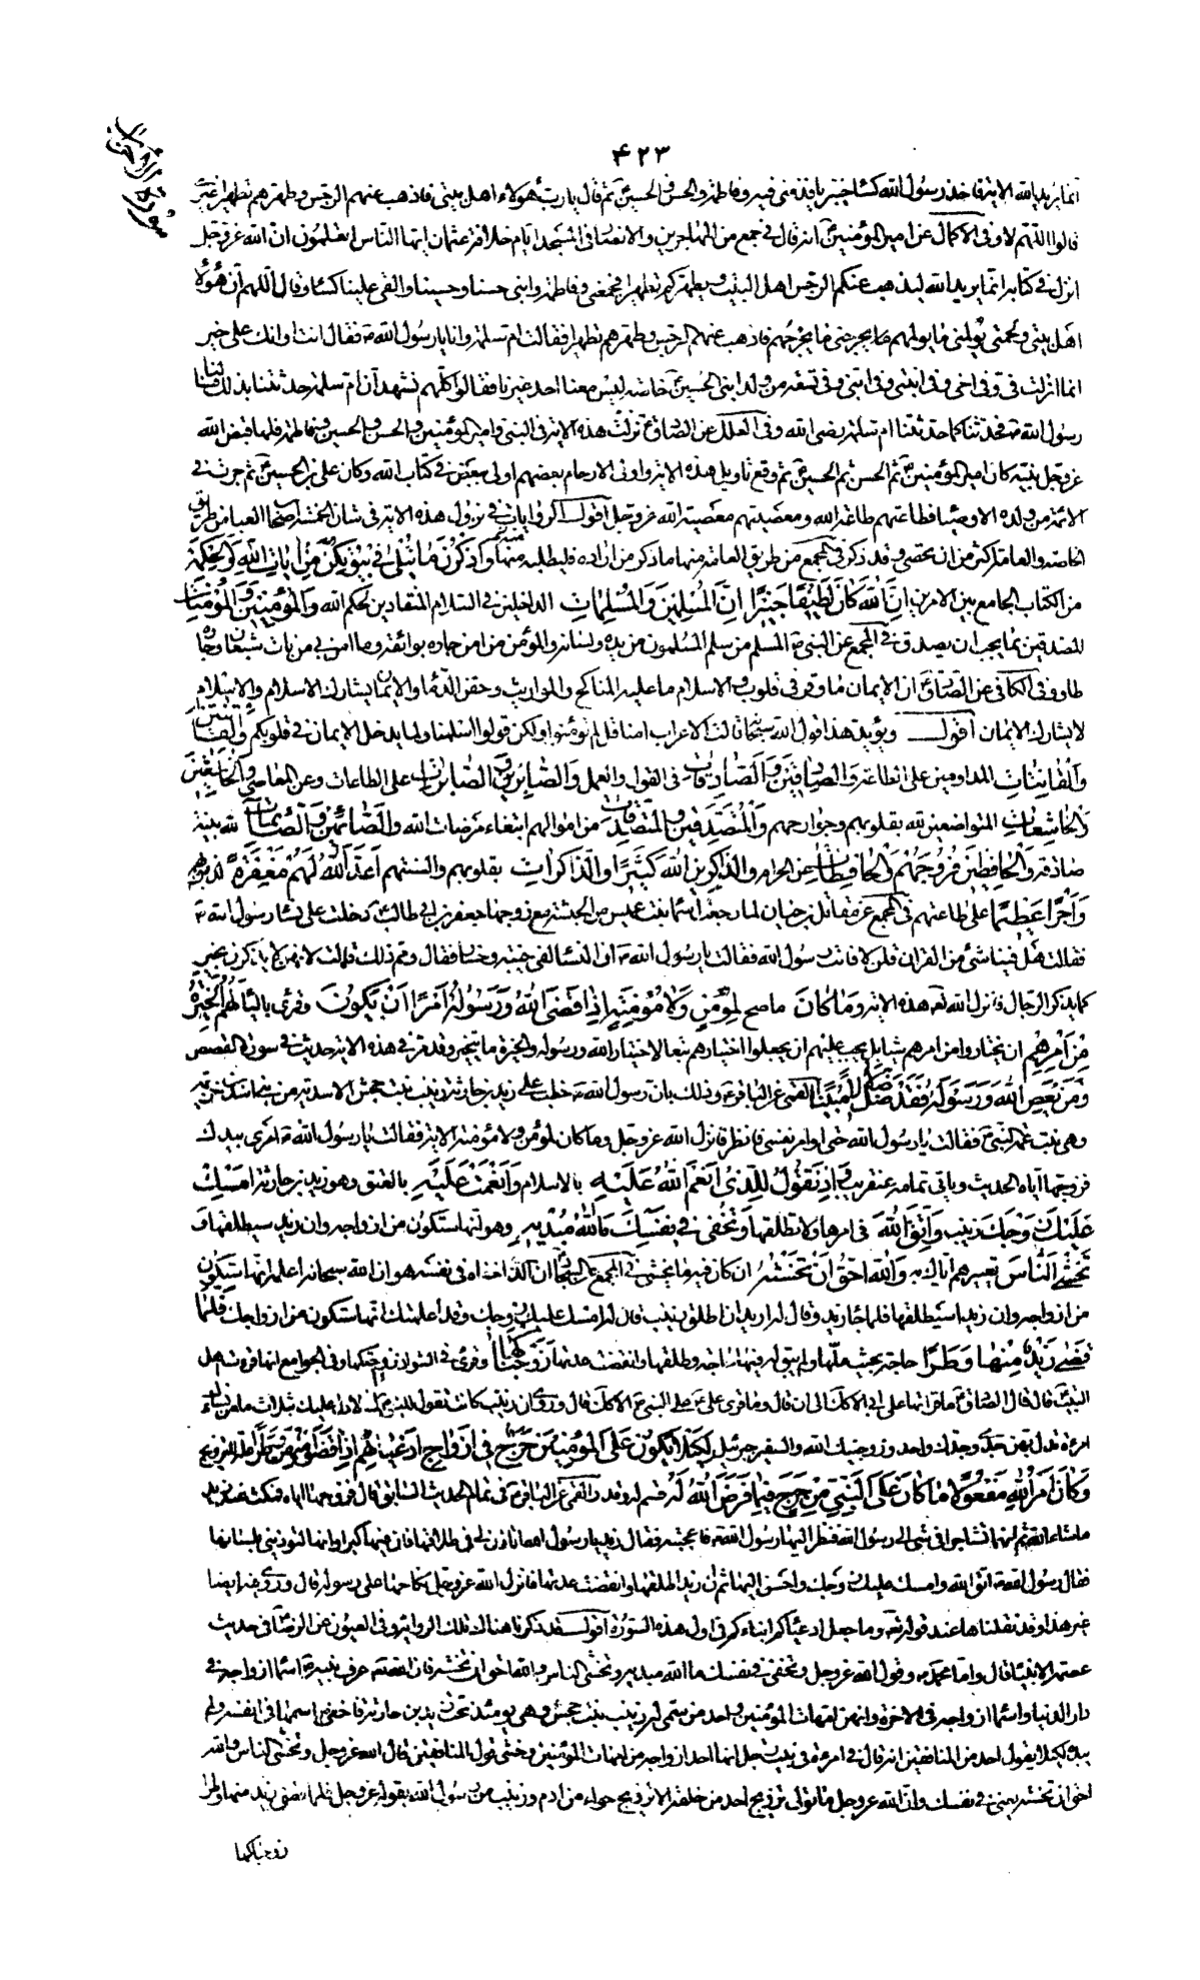 سورة الأحزاب
۴۲۳
انما يريد الله الاية فاخذ رسول الله كساء خيبريا فدفنى فيه وفاطمة والحسن والحسين ثم قال يا رب هؤلاء اهل بيتى فاذهب عنهم الرجس وطهرهم تطهيرا
قالوا اللهم لا وفى الاكمال عن امير المؤمنين انه قال فى جمع من المهاجرين والانصار فى المسجد ايام خلافة عثمان ايها الناس اتعلمون ان الله عز وجل
انزل فى كتابه انما يريد الله ليذهب عنكم الرجس اهل البيت ويطهركم تطهيرا فجمعنى وفاطمة وابنى حسنا وحسينا والقى علينا كساء وقال اللهم ان هؤلاء
اهل بيتى ولحمتى يؤلمنى ما يؤلمهم ويجرحنى ما يجرحهم فاذهب عنهم الرجس وطهرهم تطهيرا فقالت ام سلمة وانا يا رسول الله فقال انت او انك على خير
انما انزلت فى وفى اخى وفى ابنتى وفى ابنى وفى تسعة من ولد ابنى الحسين خاصة ليس معنا احد غيرنا فقالوا كلهم نشهد ان ام سلمة حدثتنا بذلك فسالنا
رسول الله فحدثنا كما حدثتنا ام سلمة رضى الله وفى العلل عن الصادق نزلت هذه الاية فى النبى وامير المؤمنين والحسن والحسين وفاطمة فلما قبض الله
عز وجل نبيه كان امير المؤمنين ثم الحسن ثم الحسين ثم وقع تاويل هذه الاية واولوا الارحام بعضهم اولى ببعض فى كتاب الله وكان على بن الحسين ثم جرت فى
الائمة من ولده الاوصياء فطاعتهم طاعة الله ومعصيتهم معصية الله عز وجل اقول والروايات فى نزول هذه الاية فى شان الخمسة اصحاب العبا من طريق
الخاصة والعامة اكثر من ان تحصى وقد ذكر فى المجمع من طريق العامة منها ما ذكر من اراده فليطلبه منه واذكرن ما يتلى فى بيوتكن من ايات الله والحكمة
من الكتاب الجامع بين الامرين ان الله كان لطيفا خبيرا ان المسلمين والمسلمات الداخلين فى السلم المنقادين لحكم الله والمؤمنين والمؤمنات
المصدقين بما يجب ان يصدق فى المجمع عن النبى المسلم من سلم المسلمون من يده ولسانه والمؤمن من امن جاره بوائقه وما امن بى من بات شبعان وجاره
طاو وفى الكافى عن الصادق ان الايمان ما وقر فى القلوب والاسلام ما عليه المناكح والمواريث وحقن الدماء والايمان يشارك الاسلام والاسلام
لا يشارك الايمان اقول ويؤيد هذا قول الله سبحانه قالت الاعراب امنا قل لم تؤمنوا ولكن قولوا اسلمنا ولما يدخل الايمان فى قلوبكم والقانتين
والقانتات المداومين على الطاعة والصادقين والصادقات فى القول والعمل والصابرين والصابرات على الطاعات وعن المعاصى والخاشعين
والخاشعات المتواضعين لله بقلوبهم وجوارحهم والمتصدقين والمتصدقات من اموالهم ابتغاء مرضات الله والصائمين والصائمات لله بنية
صادقة والحافظين فروجهم والحافظات عن الحرام والذاكرين الله كثيرا والذاكرات بقلوبهم والسنتهم اعد الله لهم مغفرة لذنوبهم
واجرا عظيما على طاعتهم فى المجمع عن مقاتل بن حيان لما رجعت اسماء بنت عميس من الحبشة مع زوجها جعفر بن ابى طالب دخلت على نساء رسول الله
فقالت هل فينا شىء من القران قلن لا فاتت رسول الله فقالت يا رسول الله ان النساء لفى خيبة وخسار فقال ومم ذلك قالت لانهن لا يذكرن بخير
كما يذكر الرجال فانزل الله هذه الاية وما كان ما صح لمؤمن ولا مؤمنة اذا قضى الله ورسوله امرا ان يكون وقرئ بالياء لهم الخيرة
من امرهم ان يختاروا من امرهم شيئا بل يجب عليهم ان يجعلوا اختيارهم تبعا لاختيار الله ورسوله والخيرة ما يتخير وقد مر فى هذه الاية حديث فى سورة القصص
ومن يعص الله ورسوله فقد ضل ضلالا مبينا القمى عن الباقر وذلك بان رسول الله خطب على زيد بن حارثة زينب بنت جحش الاسدية من بنى اسد بن خزيمة
وهى بنت عمة النبى فقالت يا رسول الله حتى اوامر نفسى فانظر فانزل الله عز وجل وما كان لمؤمن ولا مؤمنة الاية فقالت يا رسول الله امرى بيدك
فزوجها اياه الحديث وياتى تمامه عنقريب واذ تقول للذى انعم الله عليه بالاسلام وانعمت عليه بالعتق وهو زيد بن حارثة امسك
عليك زوجك زينب واتق الله فى امرها ولا تطلقها وتخفى فى نفسك ما الله مبديه وهو انها ستكون من ازواجه وان زيد سيطلقها و
تخشى الناس تعييرهم اياك به والله احق ان تخشاه ان كان فيه ما يخشى فى المجمع عن السجاد ان الذى اخفاه فى نفسه هو ان الله سبحانه اعلمه انها ستكون
من ازواجه وان زيدا سيطلقها فلما جاء زيد وقال له اريد ان اطلق زينب قال له امسك عليك زوجك وقد اعلمتك انها ستكون من ازواجك فلما
قضى زيد منها وطرا حاجة بحيث ملها ولم يبق له فيها حاجة وطلقها وانقضت عدتها زوجناكها وقرئ فى الشواذ زوجتكها وفى الجوامع انها قراءة اهل
البيت قال قال الصادق ما قراتها على ابى الا كذلك الى ان قال وما قرئ على على النبى الا كذلك قال وروى ان زينب كانت تقول للنبى انى لادل عليك بثلاث ما من نسائك
امراة تدل بهن جدى وجدك واحد وزوجنيك الله والسفير جبرئيل لكيلا يكون على المؤمنين حرج فى ازواج ادعيائهم اذا قضوا منهن وطرا
وكان امر الله مفعولا ما كان على النبى من حرج فيما فرض الله له قسم له وقدر القمى عن الباقر فى تمام الحديث السابق قال فزوجها اياه فمكثت عند زيد
ما شاء الله ثم انهما تشاجرا فى شىء الى رسول الله فنظر اليها رسول الله فاعجبته فقال زيد يا رسول الله اتاذن لى فى طلاقها فان فيها كبرا وانها لتؤذينى بلسانها
فقال رسول الله اتق الله وامسك عليك زوجك واحسن اليها ثم ان زيدا طلقها وانقضت عدتها فانزل الله عز وجل نكاحها على رسوله قال وروى فيه ايضا
غير هذا وقد نقلناها عند قوله وما جعل ادعياءكم ابناءكم فى اول هذه السورة اقول قد ذكرنا هناك تلك الرواية وفى العيون عن الرضا فى حديث
عصمة الانبياء قال واما محمد وقول الله عز وجل وتخفى فى نفسك ما الله مبديه وتخشى الناس والله احق ان تخشاه فان الله عرف نبيه اسماء ازواجه فى
دار الدنيا واسماء ازواجه فى الاخرة وانهن امهات المؤمنين واحد من سمى له زينب بنت جحش وهى يومئذ تحت زيد بن حارثة فاخفى اسمها فى نفسه ولم
يبده لكيلا يقول احد من المنافقين انه قال فى امراة فى بيت رجل انها احد ازواجه من امهات المؤمنين وخشى قول المنافقين قال الله عز وجل وتخشى الناس والله
احق ان تخشاه يعنى فى نفسك وان الله عز وجل ما تولى تزويج احد من خلقه الا تزويج حواء من ادم وزينب من رسول الله بقوله عز وجل فلما قضى زيد منها وطرا
زوجناكها